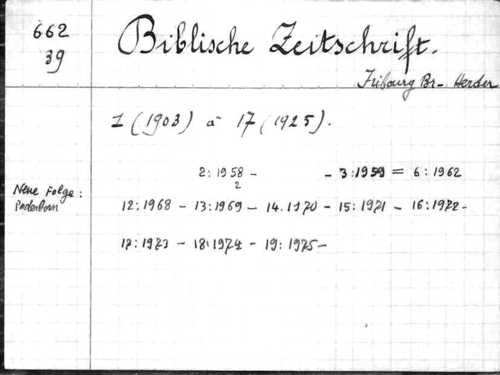 662
39
Biblische Zeitschrift.
Fribourg Br- Herder
1 (1903) à 17 (1925).
2: 1958 - - 3:1959 = 6:1962
2
Neue Folge:
Paderborn
12:1968 - 13:1969 - 14.1970 - 15:1971 - 16:1972-
17:1973 - 18:1974 - 19:1975-